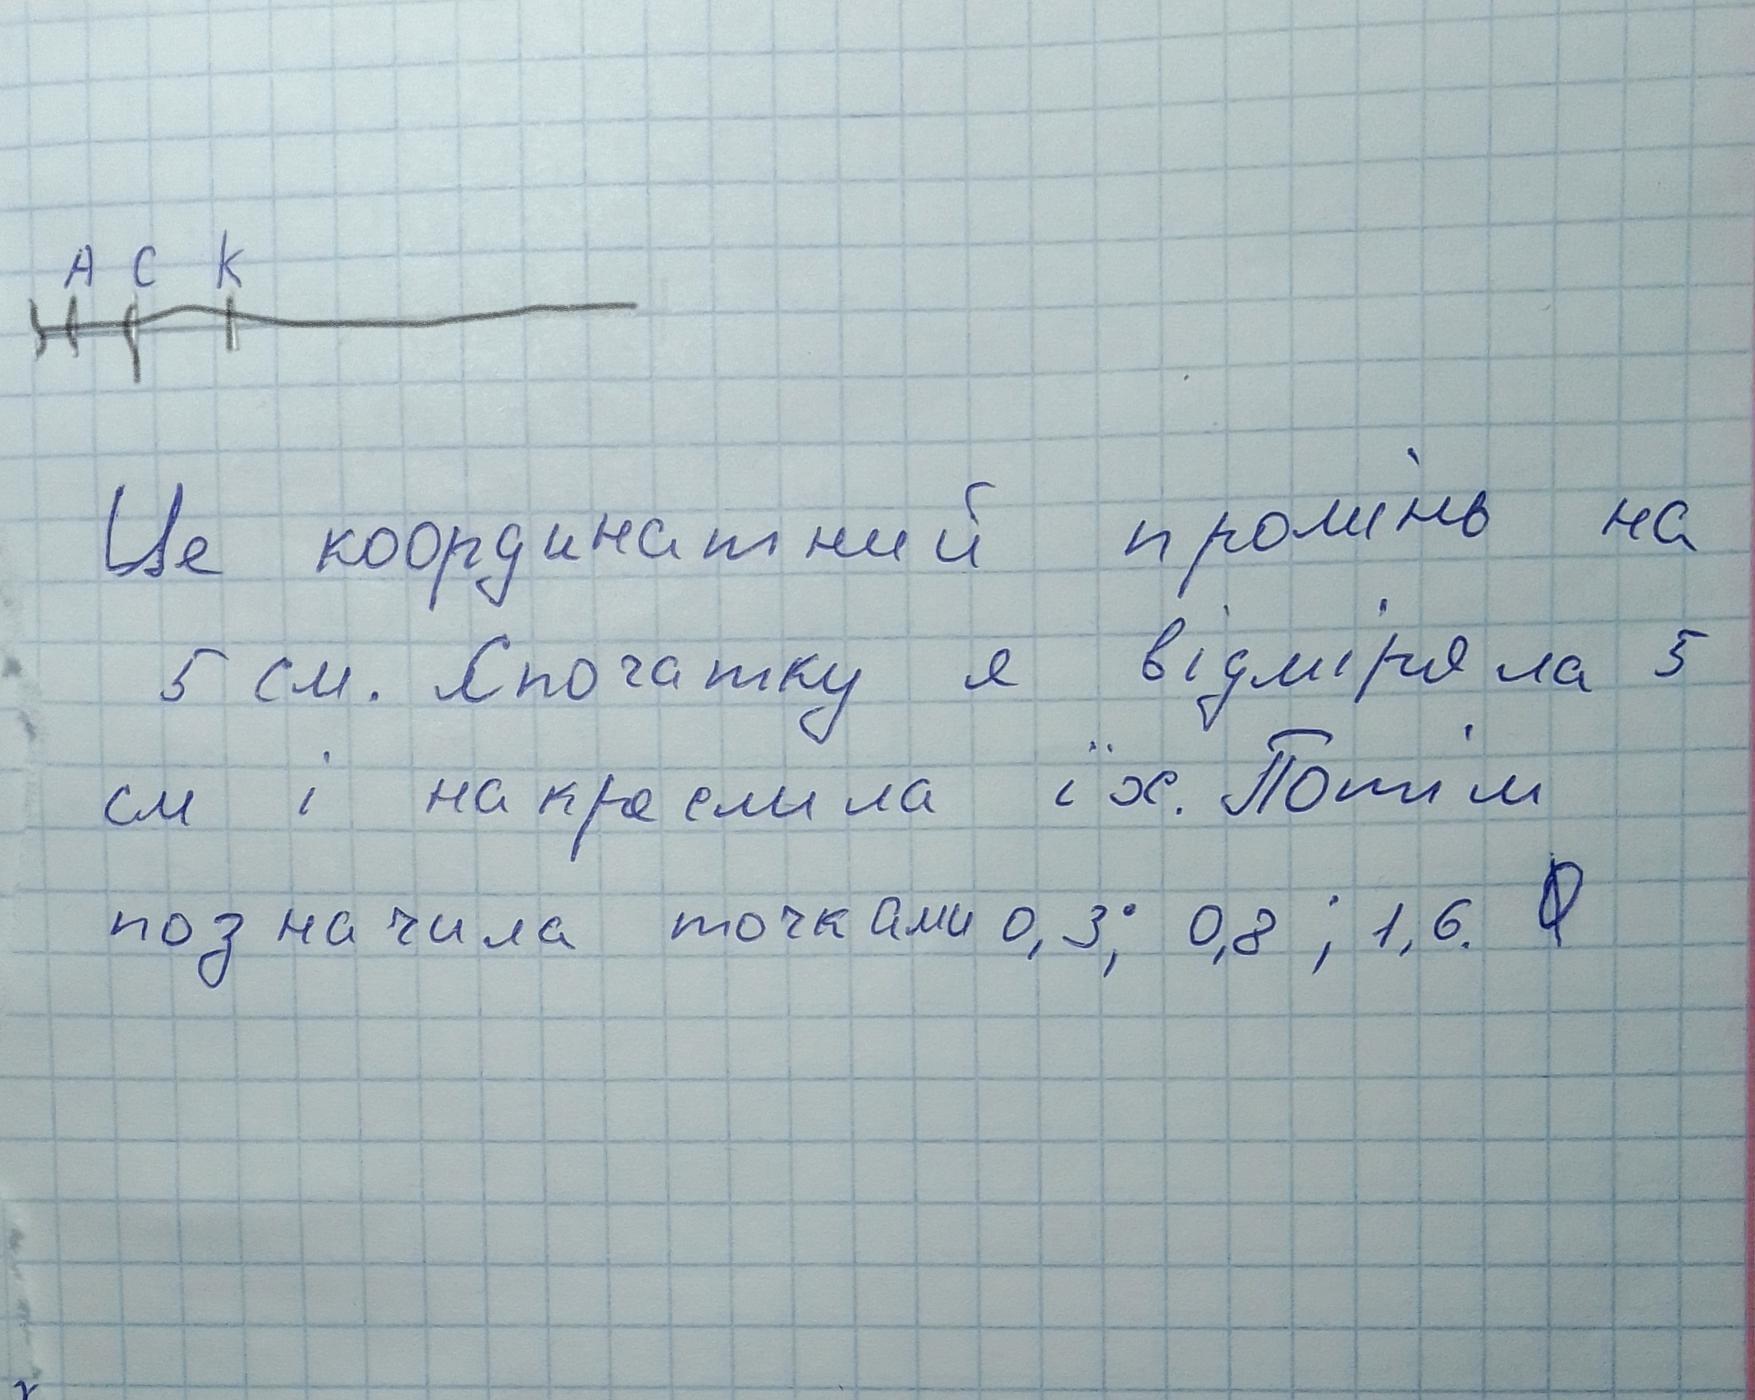 А С К
Це координатний промінь на
5 см. Спочатку я відміряла 5
см і накреслила їх. Потім
позначила точками 0,3; 0,8; 1,6.